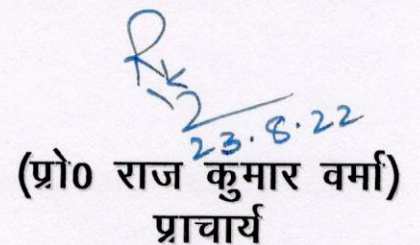 23.8.22
(प्रो0 राज कुमार वर्मा)
प्राचार्य